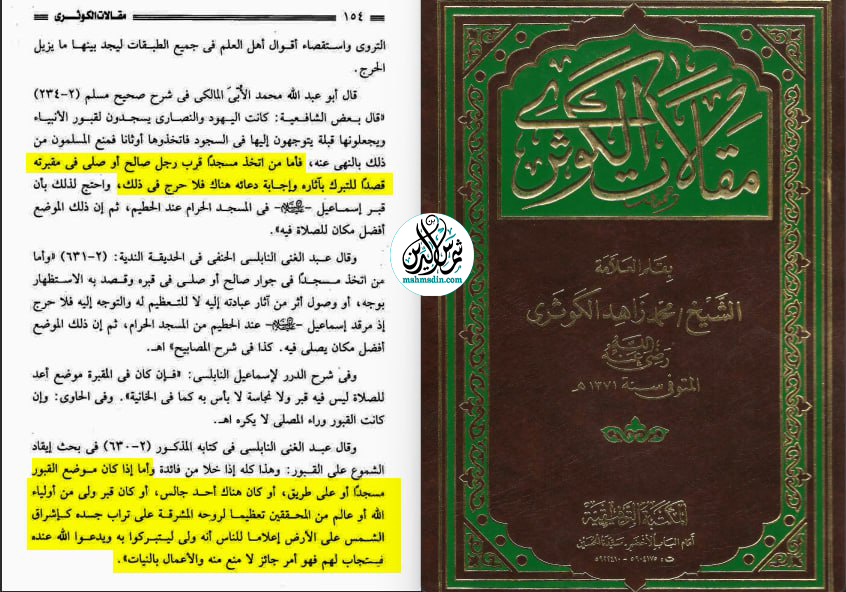 ١٥٤ مقالات الكوثرى
التروى واستقصاء أقوال أهل العلم فى جميع الطبقات ليجد بينها ما يزيل
الحرج.
قال أبو عبد الله محمد الأُبِّىّ المالكى فى شرح صحيح مسلم (٢-٢٣٤)
«قال بعض الشافعية: كانت اليهود والنصارى يسجدون لقبور الأنبياء
ويجعلونها قبلة يتوجهون إليها فى السجود فاتخذوها أوثانا فمنع المسلمون من
ذلك بالنهى عنه، فأما من اتخذ مسجدًا قرب رجل صالح أو صلى فى مقبرته
قصدًا للتبرك بآثاره وإجابة دعائه هناك فلا حرج فى ذلك، واحتج لذلك بأن
قبر إسماعيل -ﷺ- فى المسجد الحرام عند الحطيم، ثم إن ذلك الموضع
أفضل مكان للصلاة فيه».
وقال عبد الغنى النابلسى الحنفى فى الحديقة الندية: (٢-٦٣١) «وأما
من اتخذ مسجدًا فى جوار صالح أو صلى فى قبره وقصد به الاستظهار
بوجه، أو وصول أثر من آثار عبادته إليه لا للتعظيم له والتوجه إليه فلا حرج
إذ مرقد إسماعيل -ﷺ- عند الحطيم من المسجد الحرام، ثم إن ذلك الموضع
أفضل مكان يصلى فيه. كذا فى شرح المصابيح» اهـ.
وفى شرح الدرر لإسماعيل النابلسى: «فإن كان فى المقبرة موضع أعد
للصلاة ليس فيه قبر ولا نجاسة لا بأس به كما فى الخانية». وفى الحاوى: وإن
كانت القبور وراء المصلى لا يكره اهـ.
وقال عبد الغنى النابلسى فى كتابه المذكور (٢-٦٣٠) فى بحث إيقاد
الشموع على القبور: وهذا كله إذا خلا من فائدة وأما إذا كان موضع القبور
مسجدًا أو على طريق، أو كان هناك أحد جالس، أو كان قبر ولى من أولياء
الله أو عالم من المحققين تعظيما لروحه المشرقة على تراب جسده كإشراق
الشمس على الأرض إعلاما للناس أنه ولى ليتبركوا به ويدعوا الله عنده
فيستجاب لهم فهو أمر جائز لا منع منه والأعمال بالنيات».
شمس الدين
mahmadin.com
مقالات الكوثرى
بقلم العلامة
الشيخ / محمد زاهد الكوثرى
رضى الله عنه
المتوفى سنة ١٣٧١ هـ
المكتبة التوفيقية
أمام الباب الأخضر - سيدنا الحسين